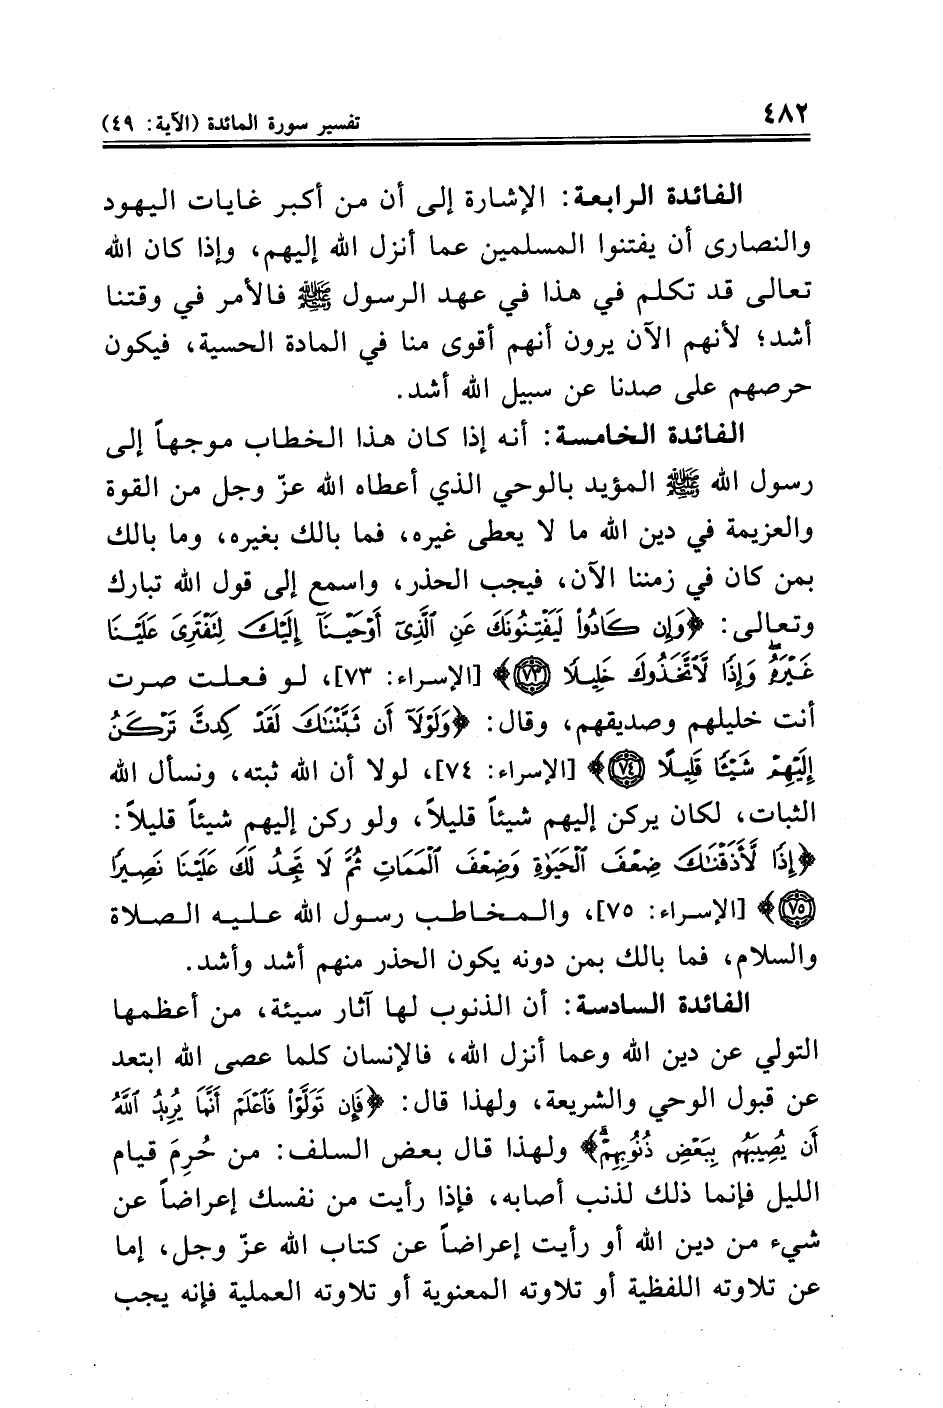 ٤٨٢
تفسير سورة المائدة (الآية: ٤٩)
الفائدة الرابعة: الإشارة إلى أن من أكبر غايات اليهود
والنصارى أن يفتنوا المسلمين عما أنزل الله إليهم، وإذا كان الله
تعالى قد تكلم في هذا في عهد الرسول ﷺ فالأمر في وقتنا
أشد؛ لأنهم الآن يرون أنهم أقوى منا في المادة الحسية، فيكون
حرصهم على صدنا عن سبيل الله أشد.
الفائدة الخامسة: أنه إذا كان هذا الخطاب موجهاً إلى
رسول الله ﷺ المؤيد بالوحي الذي أعطاه الله عزّ وجل من القوة
والعزيمة في دين الله ما لا يعطى غيره، فما بالك بغيره، وما بالك
بمن كان في زمننا الآن، فيجب الحذر، واسمع إلى قول الله تبارك
وتعالى: ﴿وَإِن كَادُوا۟ لَيَفْتِنُونَكَ عَنِ ٱلَّذِىٓ أَوْحَيْنَآ إِلَيْكَ لِتَفْتَرِىَ عَلَيْنَا
غَيْرَهُۥ ۖ وَإِذًا لَّٱتَّخَذُوكَ خَلِيلًا ﴿٧٣﴾﴾ [الإسراء: ٧٣]، لو فعلت صرت
أنت خليلهم وصديقهم، وقال: ﴿وَلَوْلَآ أَن ثَبَّتْنَٰكَ لَقَدْ كِدتَّ تَرْكَنُ
إِلَيْهِمْ شَيْـًٔا قَلِيلًا ﴿٧٤﴾﴾ [الإسراء: ٧٤]، لولا أن الله ثبته، ونسأل الله
الثبات، لكان يركن إليهم شيئاً قليلاً، ولو ركن إليهم شيئاً قليلاً:
﴿إِذًا لَّأَذَقْنَٰكَ ضِعْفَ ٱلْحَيَوٰةِ وَضِعْفَ ٱلْمَمَاتِ ثُمَّ لَا تَجِدُ لَكَ عَلَيْنَا نَصِيرًا
﴿٧٥﴾﴾ [الإسراء: ٧٥]، والمخاطب رسول الله عليه الصلاة
والسلام، فما بالك بمن دونه يكون الحذر منهم أشد وأشد.
الفائدة السادسة: أن الذنوب لها آثار سيئة، من أعظمها
التولي عن دين الله وعما أنزل الله، فالإنسان كلما عصى الله ابتعد
عن قبول الوحي والشريعة، ولهذا قال: ﴿فَإِن تَوَلَّوْا۟ فَٱعْلَمْ أَنَّمَا يُرِيدُ ٱللَّهُ
أَن يُصِيبَهُم بِبَعْضِ ذُنُوبِهِمْ ۗ﴾ ولهذا قال بعض السلف: من حُرِمَ قيام
الليل فإنما ذلك لذنب أصابه، فإذا رأيت من نفسك إعراضاً عن
شيء من دين الله أو رأيت إعراضاً عن كتاب الله عزّ وجل، إما
عن تلاوته اللفظية أو تلاوته المعنوية أو تلاوته العملية فإنه يجب